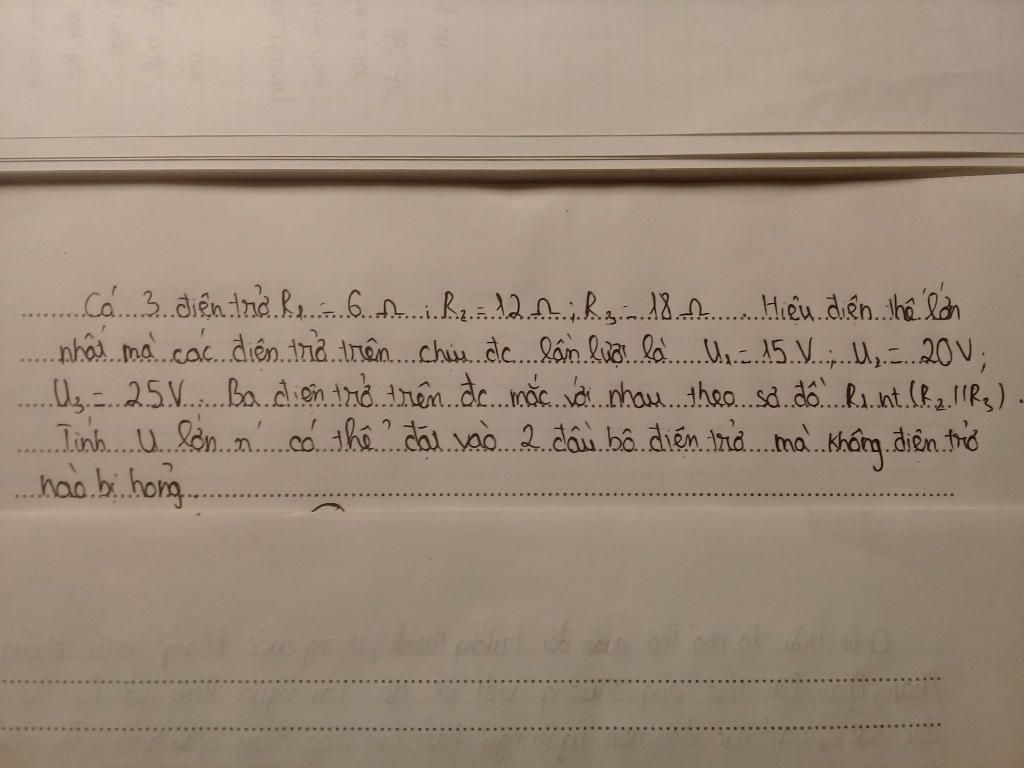 Có 3 điện trở R1 = 6 Ω ; R2 = 12 Ω ; R3 = 18 Ω . Hiệu điện thế lớn
nhất mà các điện trở trên chịu đc lần lượt là U1 = 15 V ; U2 = 20V ;
U3 = 25V . Ba điện trở trên đc mắc với nhau theo sơ đồ R1 nt (R2 // R3) .
Tính U lớn n' có thể đặt vào 2 đầu bộ điện trở mà không điện trở
nào bị hỏng .